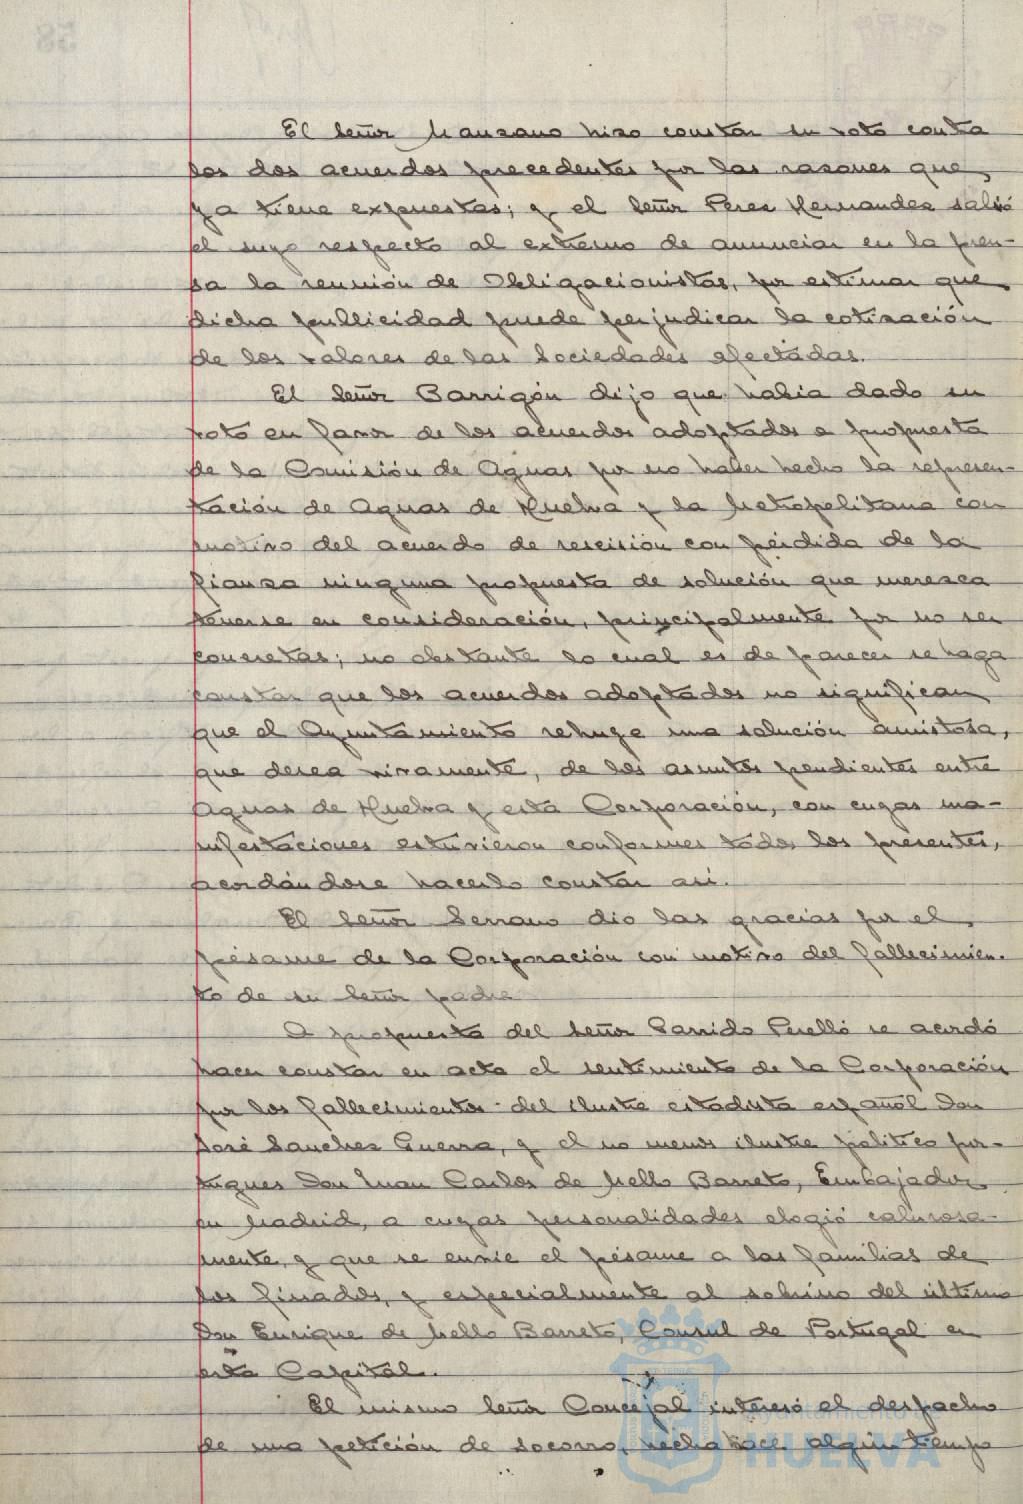 El Señor Manzano hizo constar su voto contra
los dos acuerdos precedentes por las razones que,
ya tiene expuestas; y el Señor Perez Hernandez salvó
el suyo respecto al extremo de anunciar en la pren-
sa la reunión de Obligacionistas, por estimar que
dicha publicidad puede perjudicar la cotización
de los valores de las Sociedades afectadas.
El Señor Barrigón dijo que habia dado su
voto en favor de los acuerdos adoptados a propuesta
de la Comisión de Aguas por no haber hecho la represen-
tación de Aguas de Huelva y la Metropolitana con
motivo del acuerdo de rescisión con pérdida de la
fianza ninguna propuesta de solución que merezca
tenerse en consideración, principalmente por no ser
concretas; no obstante lo cual es de parecer se haga
constar que los acuerdos adoptados no significan
que el Ayuntamiento rehuye una solución amistosa,
que desea vivamente, de los asuntos pendientes entre
Aguas de Huelva y esta Corporación, con cuyas ma-
nifestaciones estuvieron conformes todos los presentes,
acordándose hacerlo constar asi.
El Señor Serrano dio las gracias por el
pésame de la Corporación con motivo del fallecimien-
to de su Señor padre
A propuesta del Señor Garrido Perelló se acordó
hacer constar en acta el sentimiento de la Corporación
por los fallecimientos del ilustre estadista español Don
José Sanchez Guerra, y el no menos ilustre politico por-
tugues Don Juan Carlos de Mello Barreto, Embajador
en Madrid, a cuyas personalidades elogió calurosa-
mente, y que se envie el pésame a las familias de
los finados, y especialmente al sobrino del último
Don Enrique de Mello Barreto, Consul de Portugal en
esta Capital.
El mismo Señor Concejal interesó el despacho
de una petición de socorro, hecha hace algún tiempo
Ayuntamiento de
HUELVA
58